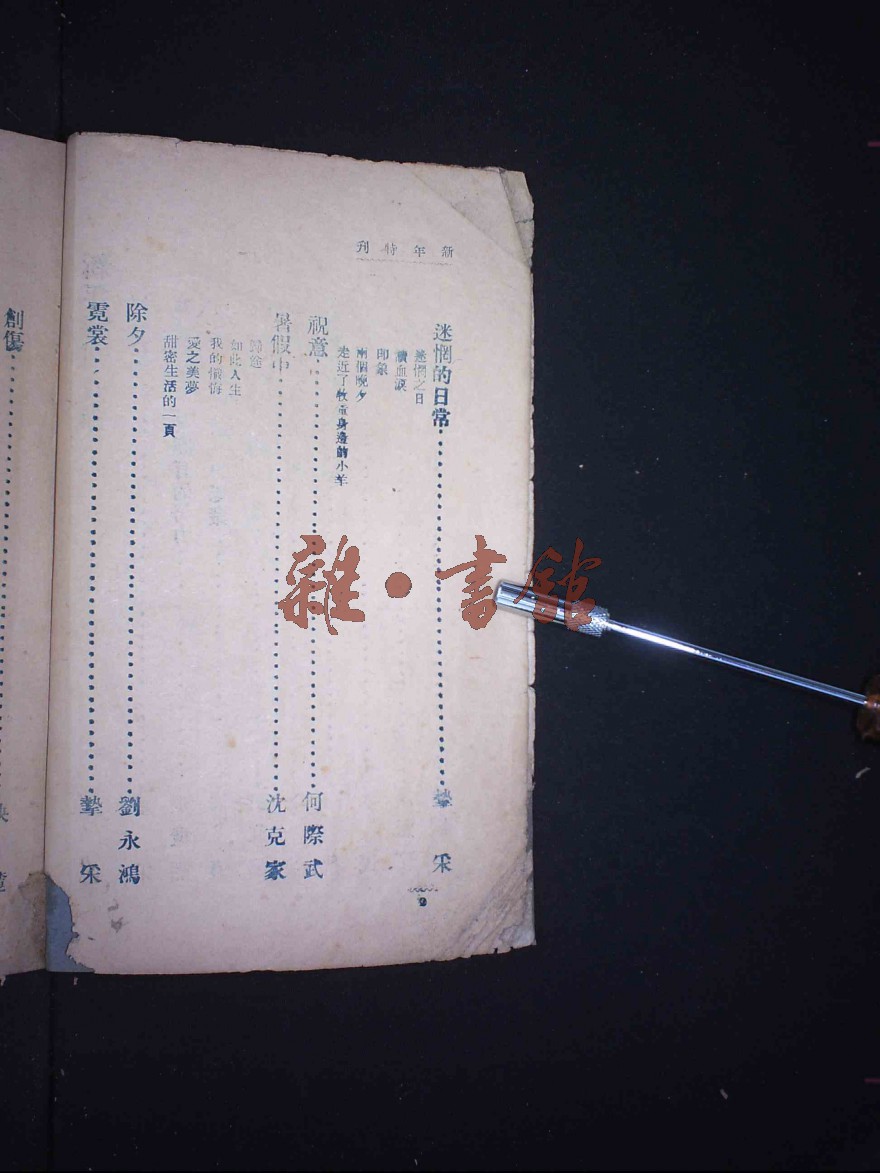 新年特刊
迷惘的日常……摯采
迷惘之日
瀆血淚
印象
兩個晚夕
走近了牧童身邊的小羊
祝意……何際武
暑假中……沈克家
歸途
如此人生
我的懺悔
愛之美夢
甜密生活的一頁
除夕……劉永鴻
霓裳……摯采
創傷
雜·書館
9